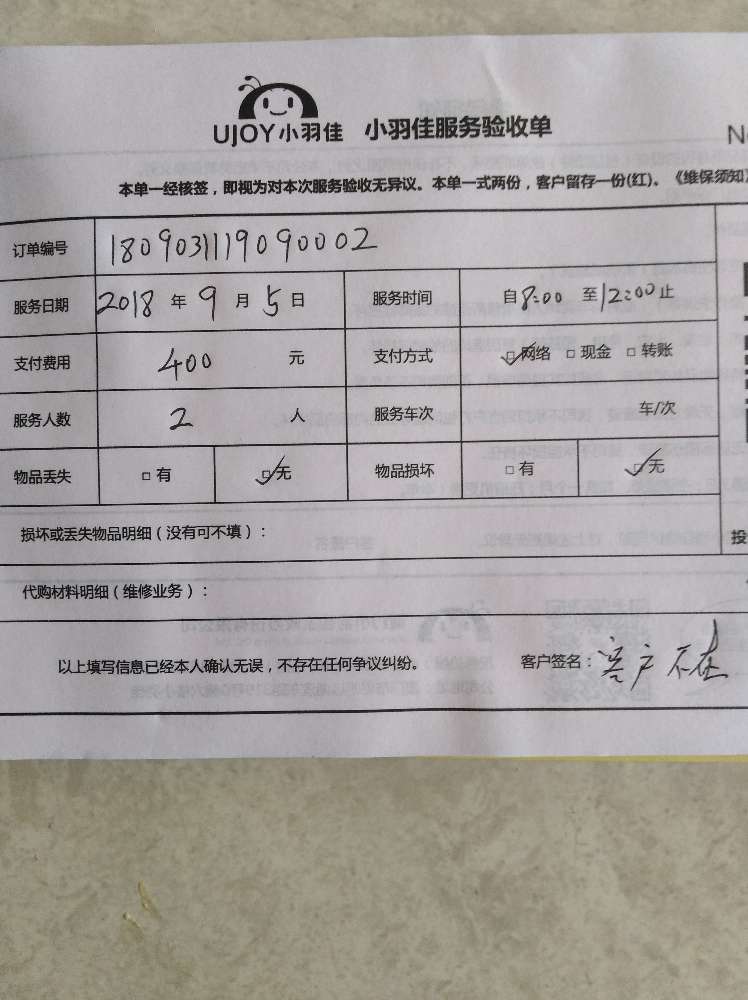 UJOY小羽佳 小羽佳服务验收单
N
本单一经核签，即视为对本次服务验收无异议。本单一式两份，客户留存一份(红)。《维保须知
订单编号 1809031119090002
服务日期 2018 年 9 月 5 日 服务时间 自 8:00 至 12:00 止
支付费用 400 元 支付方式 ☑网络 □现金 □转账
服务人数 2 人 服务车次 车/次
物品丢失 □有 ☑无 物品损坏 □有 ☑无
损坏或丢失物品明细（没有可不填）：
投
代购材料明细（维修业务）：
以上填写信息已经本人确认无误，不存在任何争议纠纷。 客户签名：客户不在